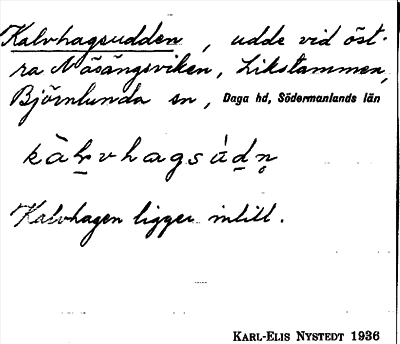 Kalvhagsudden, udde vid öst-
ra Näsängsviken, Likstammen,
Björnlunda sn, Daga hd, Södermanlands län
Kalvhagen ligger intill.
KARL-ELIS NYSTEDT 1936